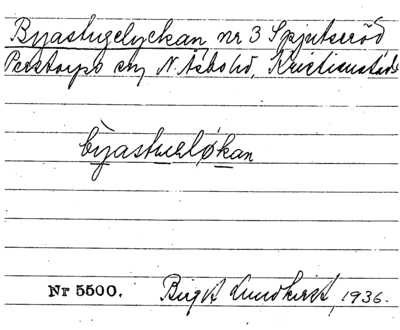 Byastugelyckan nr 3 Spjutseröd
Perstorps sn, N. Åsbo hd, Kristianstads
byastuəløkan
Nr 5500. Birgit Lundkvist, 1936.